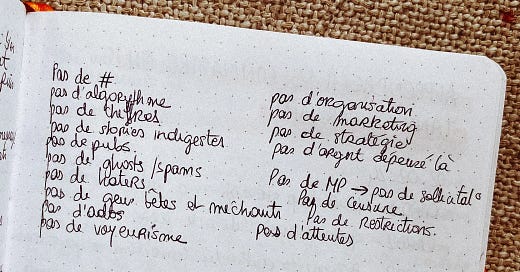 Pas de #
pas d'algorythme
pas de chiffres
pas de stories indigestes
pas de pubs.
pas de ghosts / spams
pas de haters.
pas de gens bêtes et méchants
pas d'ados
pas de voyeurisme
pas d'organisation
pas de marketing
pas de stratégie
pas d'argent dépensé là
Pas de MP → pas de sollicitat°
Pas de censure
Pas de restrictions.
pas d'attentes